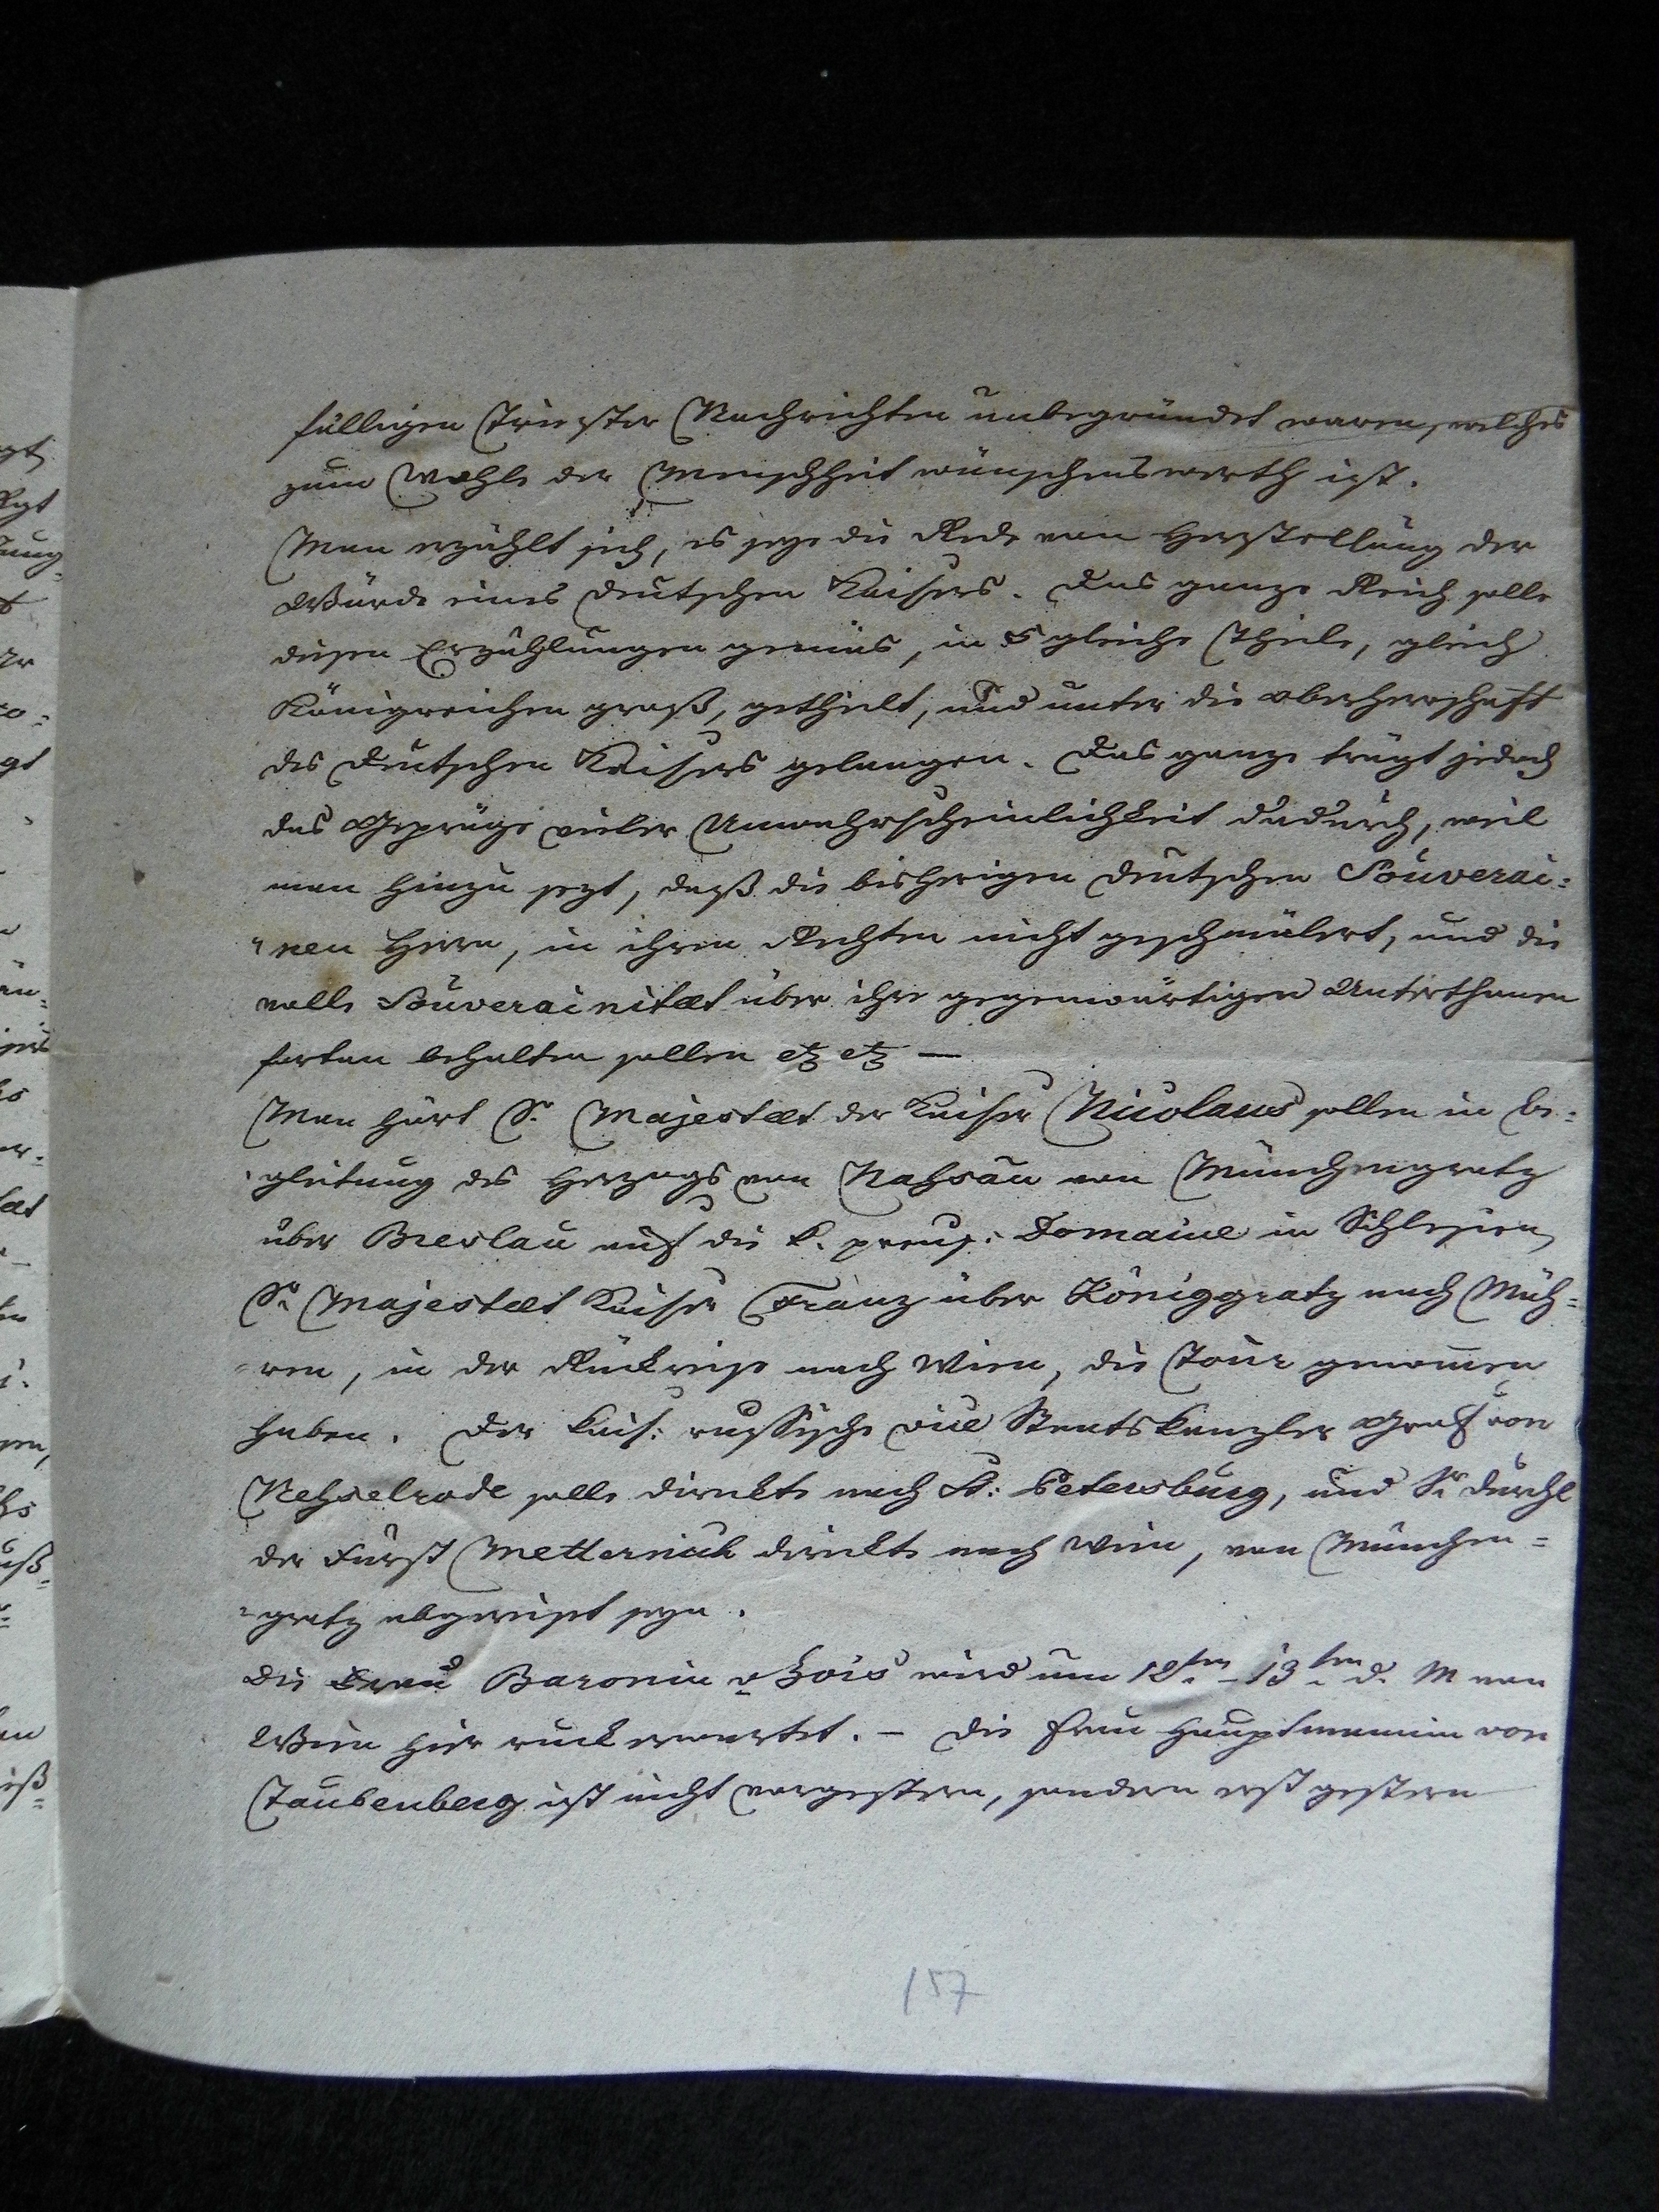 fälligen Triester Nachrichten unbegründet waren, welches
zum Wohle der Menschheit wünschenswerth ist.
Man erzählt sich, es seye die Rede von Herstellung der
Würde eines deutschen Kaisers. Das ganze Reich solle
diesen Erzählungen gemäs, in 5 gleiche Theile, gleich
Königreichen groß, getheilt, und unter die Oberherrschaft
des deutschen Kaisers gelangen. Das ganze trägt jedoch
das Gepräge vieler Unwahrscheinlichkeit dadurch, weil
man hinzu sezt, daß die bisherigen deutschen Souverai=
=nen Herrn, in ihren Rechten nicht geschmälert, und die
volle Souverainitæt über ihre gegenwärtigen Unterthanen
fortan behalten sollen etz etz —
Man hört Sr. Majestæt der Kaiser Nicolaus sollen in Be=
=gleitung des Herzogs von Nahsau von Münchengratz
über Breslau auf die k. preuß: Domaine in Schlesien,
Sr. Majestæt Kaiser Franz über Königgratz nach Mäh=
=ren, in der Rückreise nach Wien, die Tour genommen
haben. Der kais: russische vice Staatskanzler Graf von
Nehselrode solle direkte nach St: Petersburg, und Sr. Durchl
der Fürst Metternich direkte nach Wien, von München=
=gratz abgereiset seyn.
Die Frau Baronin v Zois wird um 12ten - 13ten d. M von
Wien hier ruck erwartet. – Die Frau Hauptmannin von
Taubenberg ist nicht vorgestern, sondern erst gestern
157